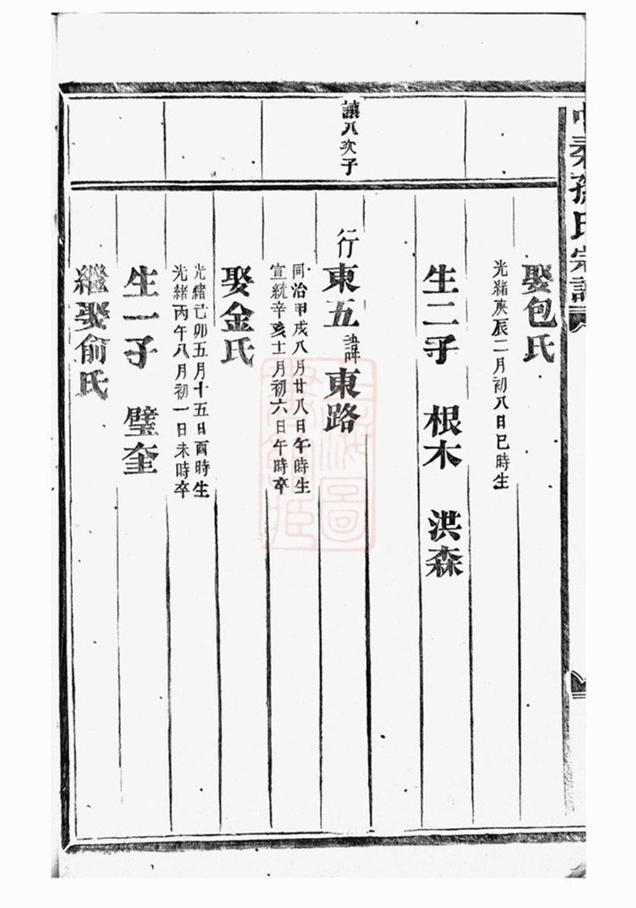 孫氏宗譜
娶包氏
光緒庚辰二月初八日巳時生
生二子 根木 洪森
讓八次子
行東五 諱東路
同治甲戌八月廿八日午時生
宣統辛亥十二月初六日午時卒
娶金氏
光緒己卯五月十五日酉時生
光緒丙午八月初一日未時卒
生一子 璧奎
繼娶俞氏